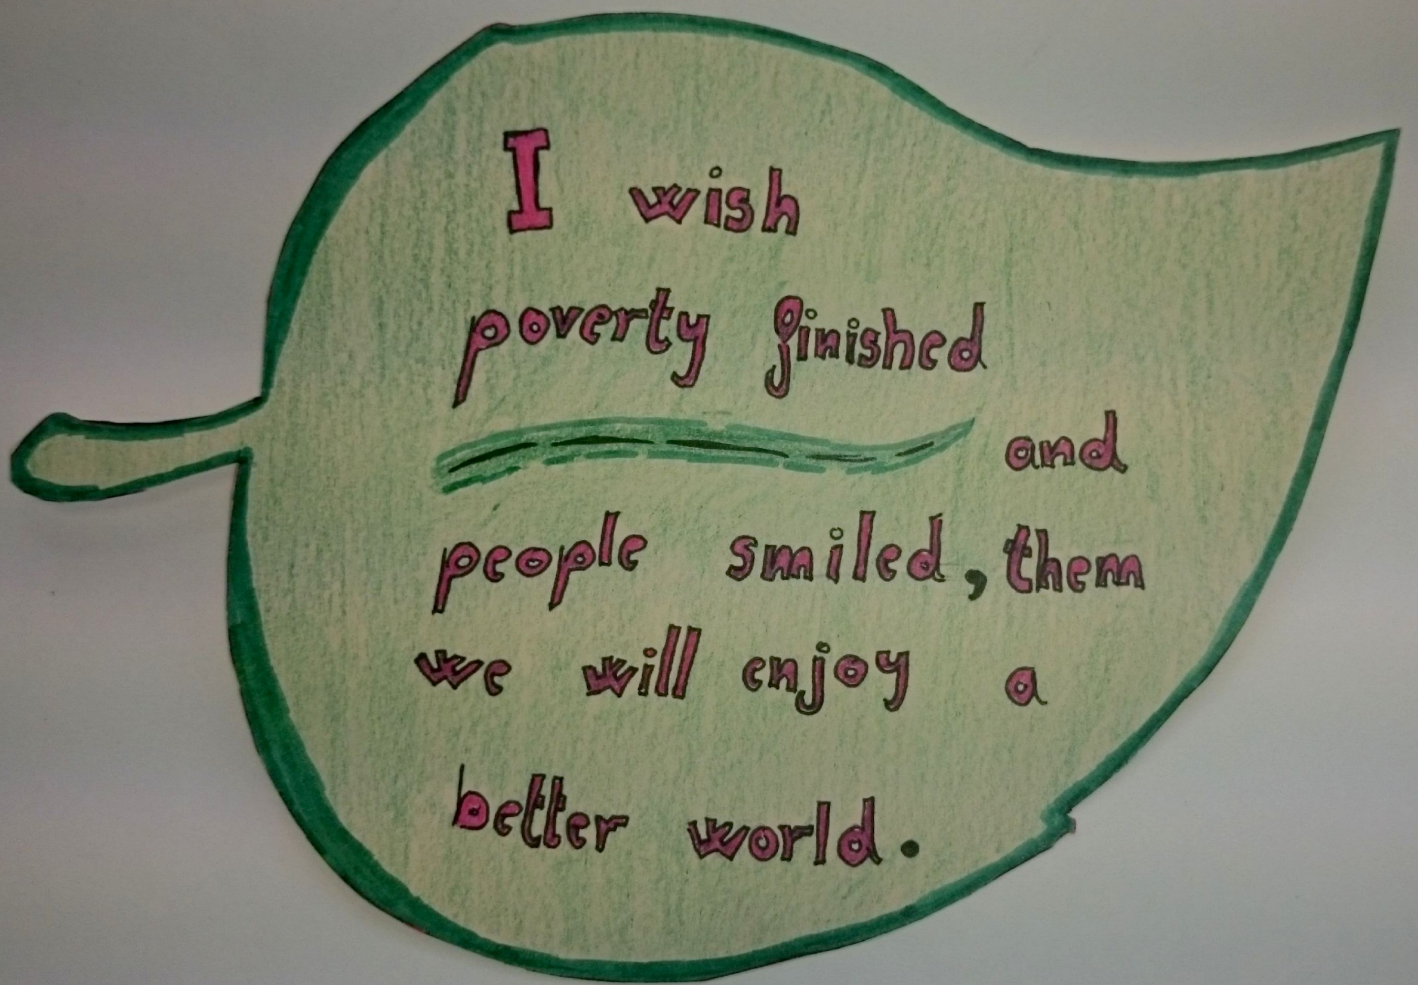 I wish
poverty finished
and
people smiled, them
we will enjoy a
better world.